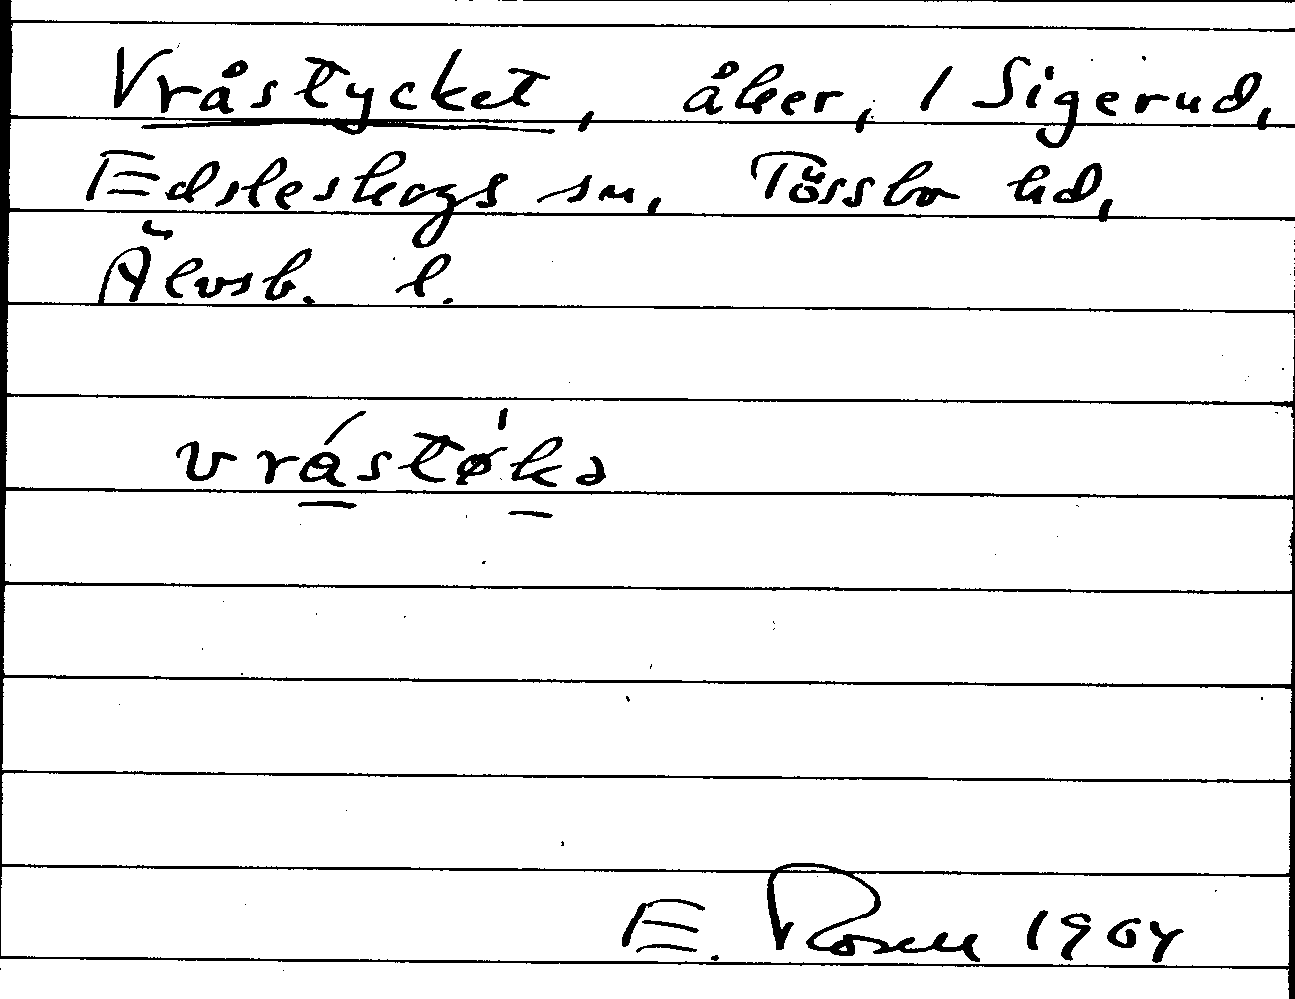 Vråstycket, åker, 1 Sigerud,
Edsleskogs sn, Tössbo hd,
Älvsb. l.
vrástø'kə
E. Rosell 1964